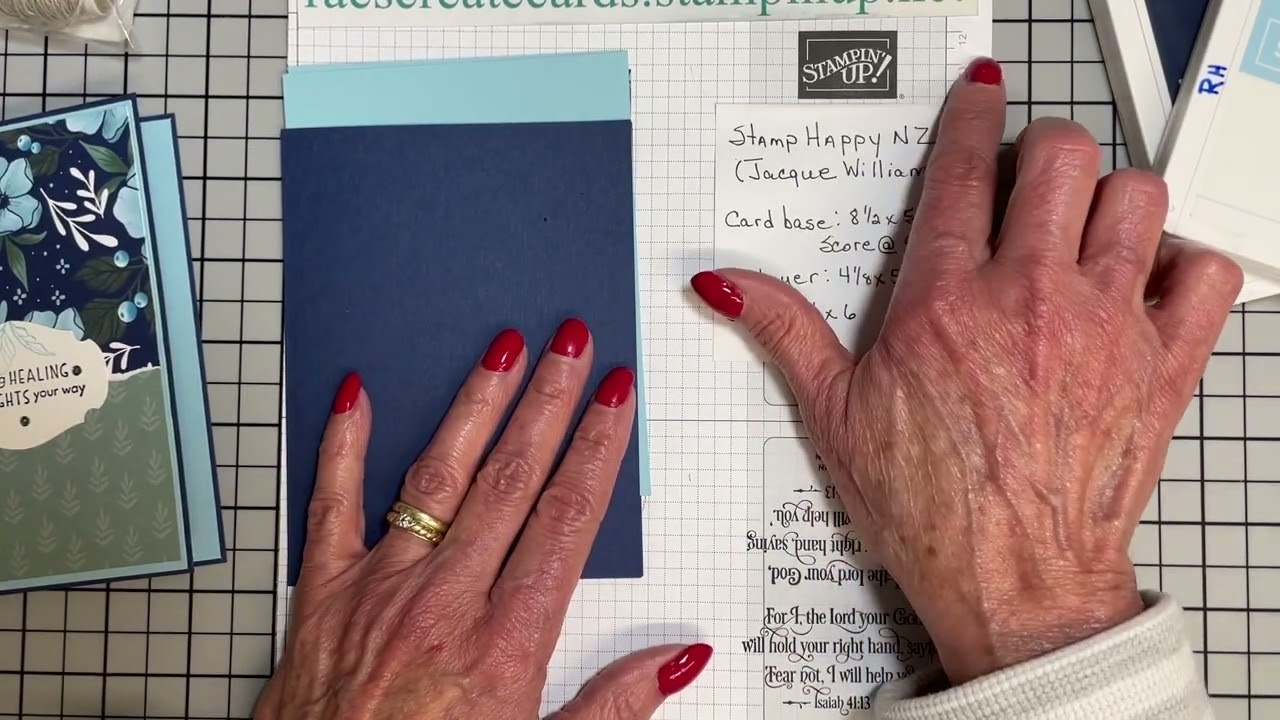 raescreatecards.stampinup.net
12
STAMPIN' UP!
RH
Stamp Happy NZ
(Jacque William
Card base: 8 1/2 x 5
Score @
4 1/8 x 5
x 6
HEALING
your way
13
will help you.'
right hand, saying
the lord your God,
For I, the lord your God,
will hold your right hand, saying
'Fear not, I will help
Isaiah 41:13